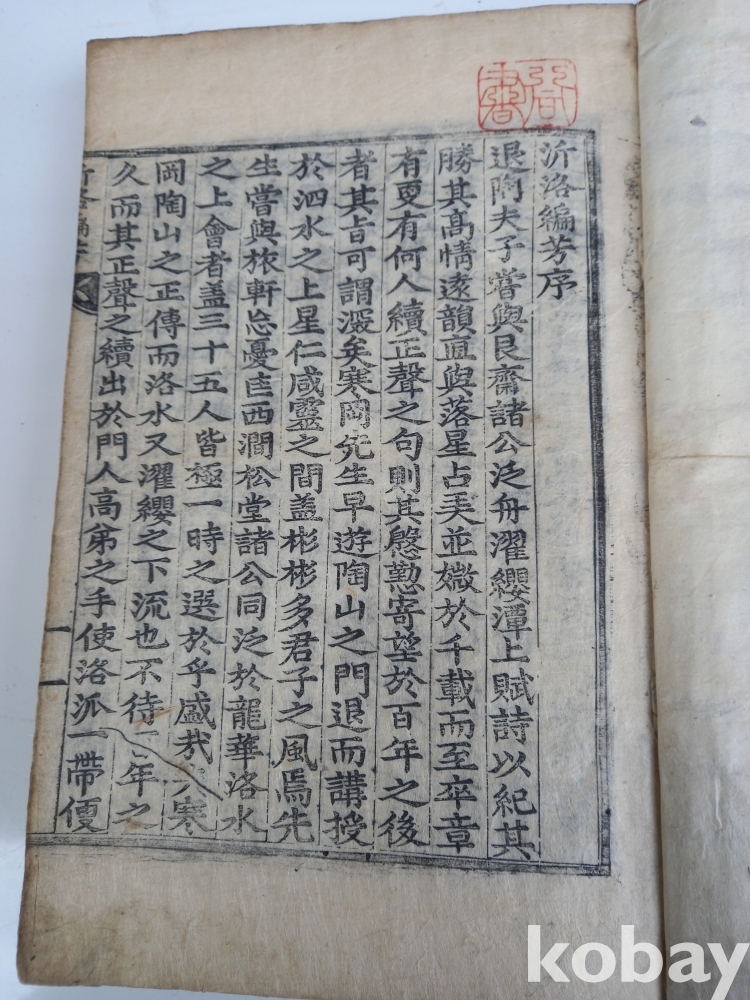 沂洛編芳序
退陶夫子嘗與艮齋諸公泛舟濯纓潭上賦詩以紀其
勝其高情遠韻直與落星占美並媺於千載而至卒章
有更有何人續正聲之句則其慇懃寄望於百年之後
者其旨可謂深矣寒岡先生早遊陶山之門退而講授
於泗水之上星仁咸靈之間盖彬彬多君子之風焉先
生嘗與旅軒忘憂匡西澗松堂諸公同泛於龍華洛水
之上會者盖三十五人皆極一時之選於乎盛哉寒
岡陶山之正傳而洛水又濯纓之下流也不待年之
久而其正聲之續出於門人高弟之手使洛派一帶便
一
kobay